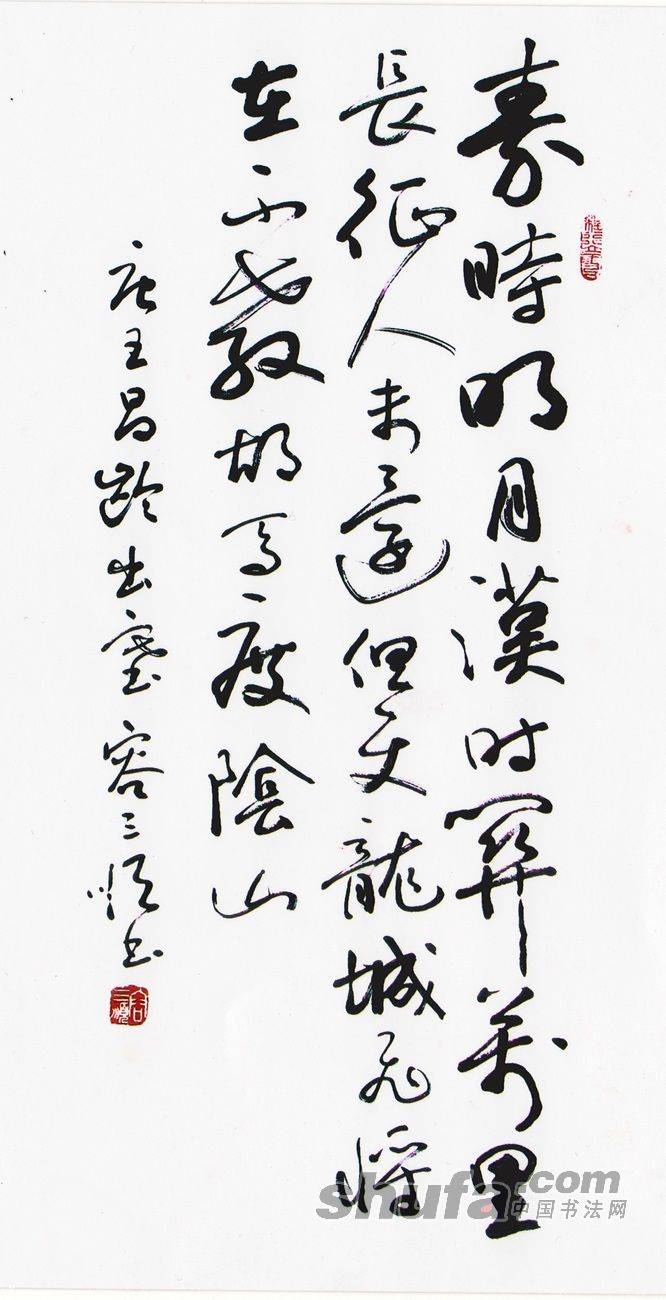 秦時明月漢时關萬里
長征人未還但使龍城飛將
在不教胡馬度陰山
唐王昌齡出塞容三順书
容三順
shufa.com
中国书法网